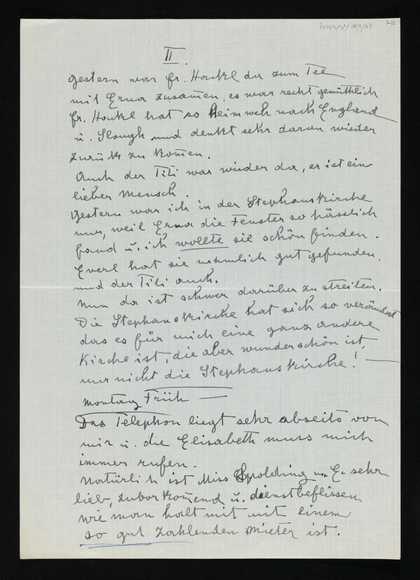 II.
Gestern war Fr. Hackl da zum Tee
mit Erna zusam̄en, es war recht gemütlich
Fr. Hackl hat so Heimweh nach England
u. Slough und denkt sehr daran wieder
zurück zu kom̄en.
Auch der Titi war wieder da, er ist ein
lieber Mensch.
Gestern war ich in der Stephanskirche
nur, weil Erna die Fenster so hässlich
fand u. ich wollte sie schön finden.
Everl hat sie nähmlich gut gefunden.
und der Titi auch.
Nun da ist schwer darüber zu streiten.
Die Stephanskirche hat sich so verändert
das es für mich eine ganz andere
Kirche ist, die aber wunderschön ist
nur nicht die Stephanskirche! —
Montag Früh —
Das Telephon liegt sehr abseits von
mir u. die Elisabeth muss mich
immer rufen.
Natürlich ist Miss Spolding u. E. sehr
lieb, zuvorkom̄end u. dienstbeflissen
wie man halt mit mit einem
so gut zahlenden Mieter ist.